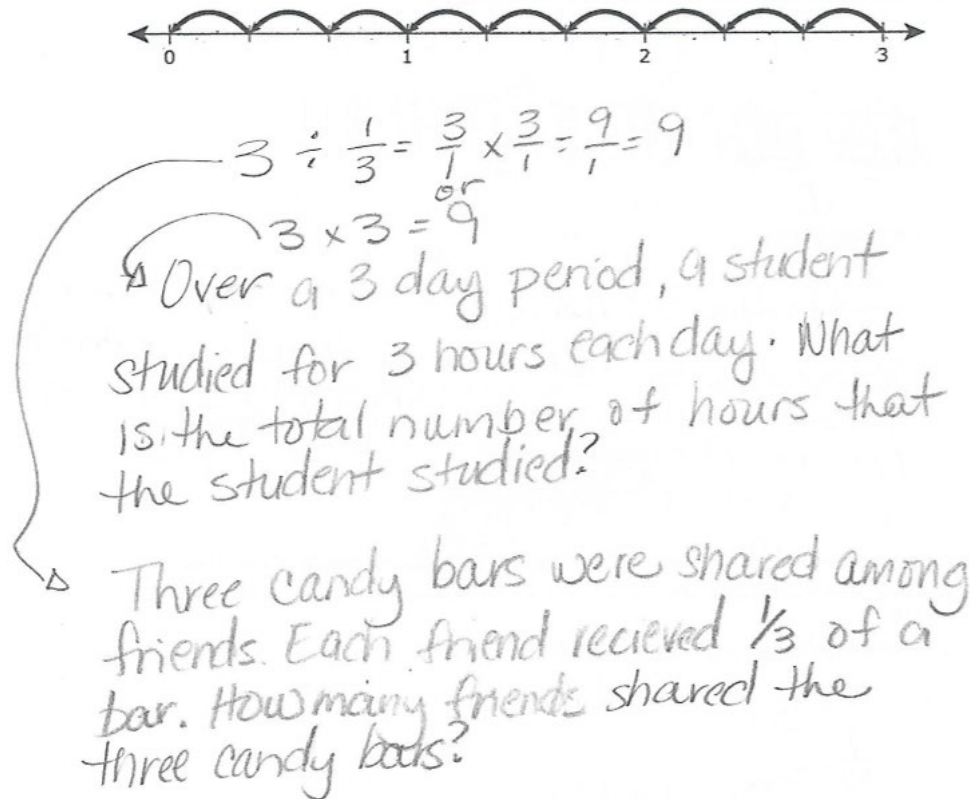 0 1 2 3
3 ÷ 1/3 = 3/1 × 3/1 = 9/1 = 9
or
3 × 3 = 9
Over a 3 day period, a student
studied for 3 hours each day. What
is the total number of hours that
the student studied?
Three candy bars were shared among
friends. Each friend recieved 1/3 of a
bar. How many friends shared the
three candy bars?